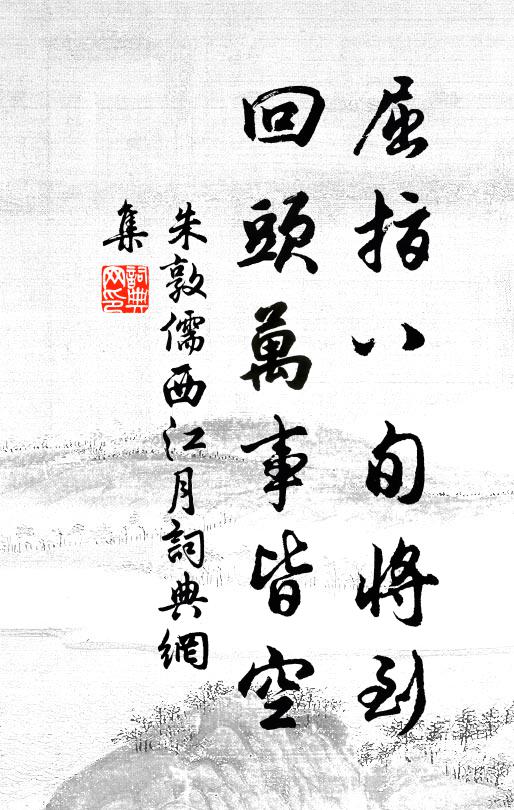 屈指八旬將到
回頭萬事皆空
朱敦儒西江月詞典網
集
詞典
网印